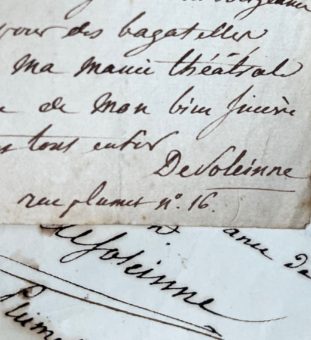 pour des bagatelles
ma manie théâtrale
de mon bien sincère
tout entier
De Soleinne
rue plumet nº. 16.
de
Soleinne